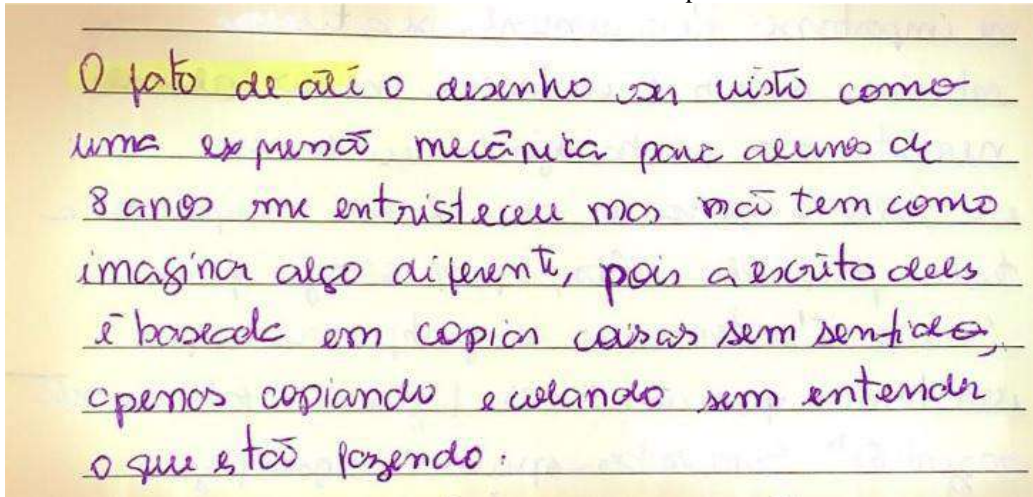 O fato de até o desenho ser visto como
uma expressão mecânica para alunos de
8 anos me entristeceu mas não tem como
imaginar algo diferente, pois a escrita deles
é baseada em copiar coisas sem sentido,
apenas copiando e colando sem entender
o que estão fazendo.